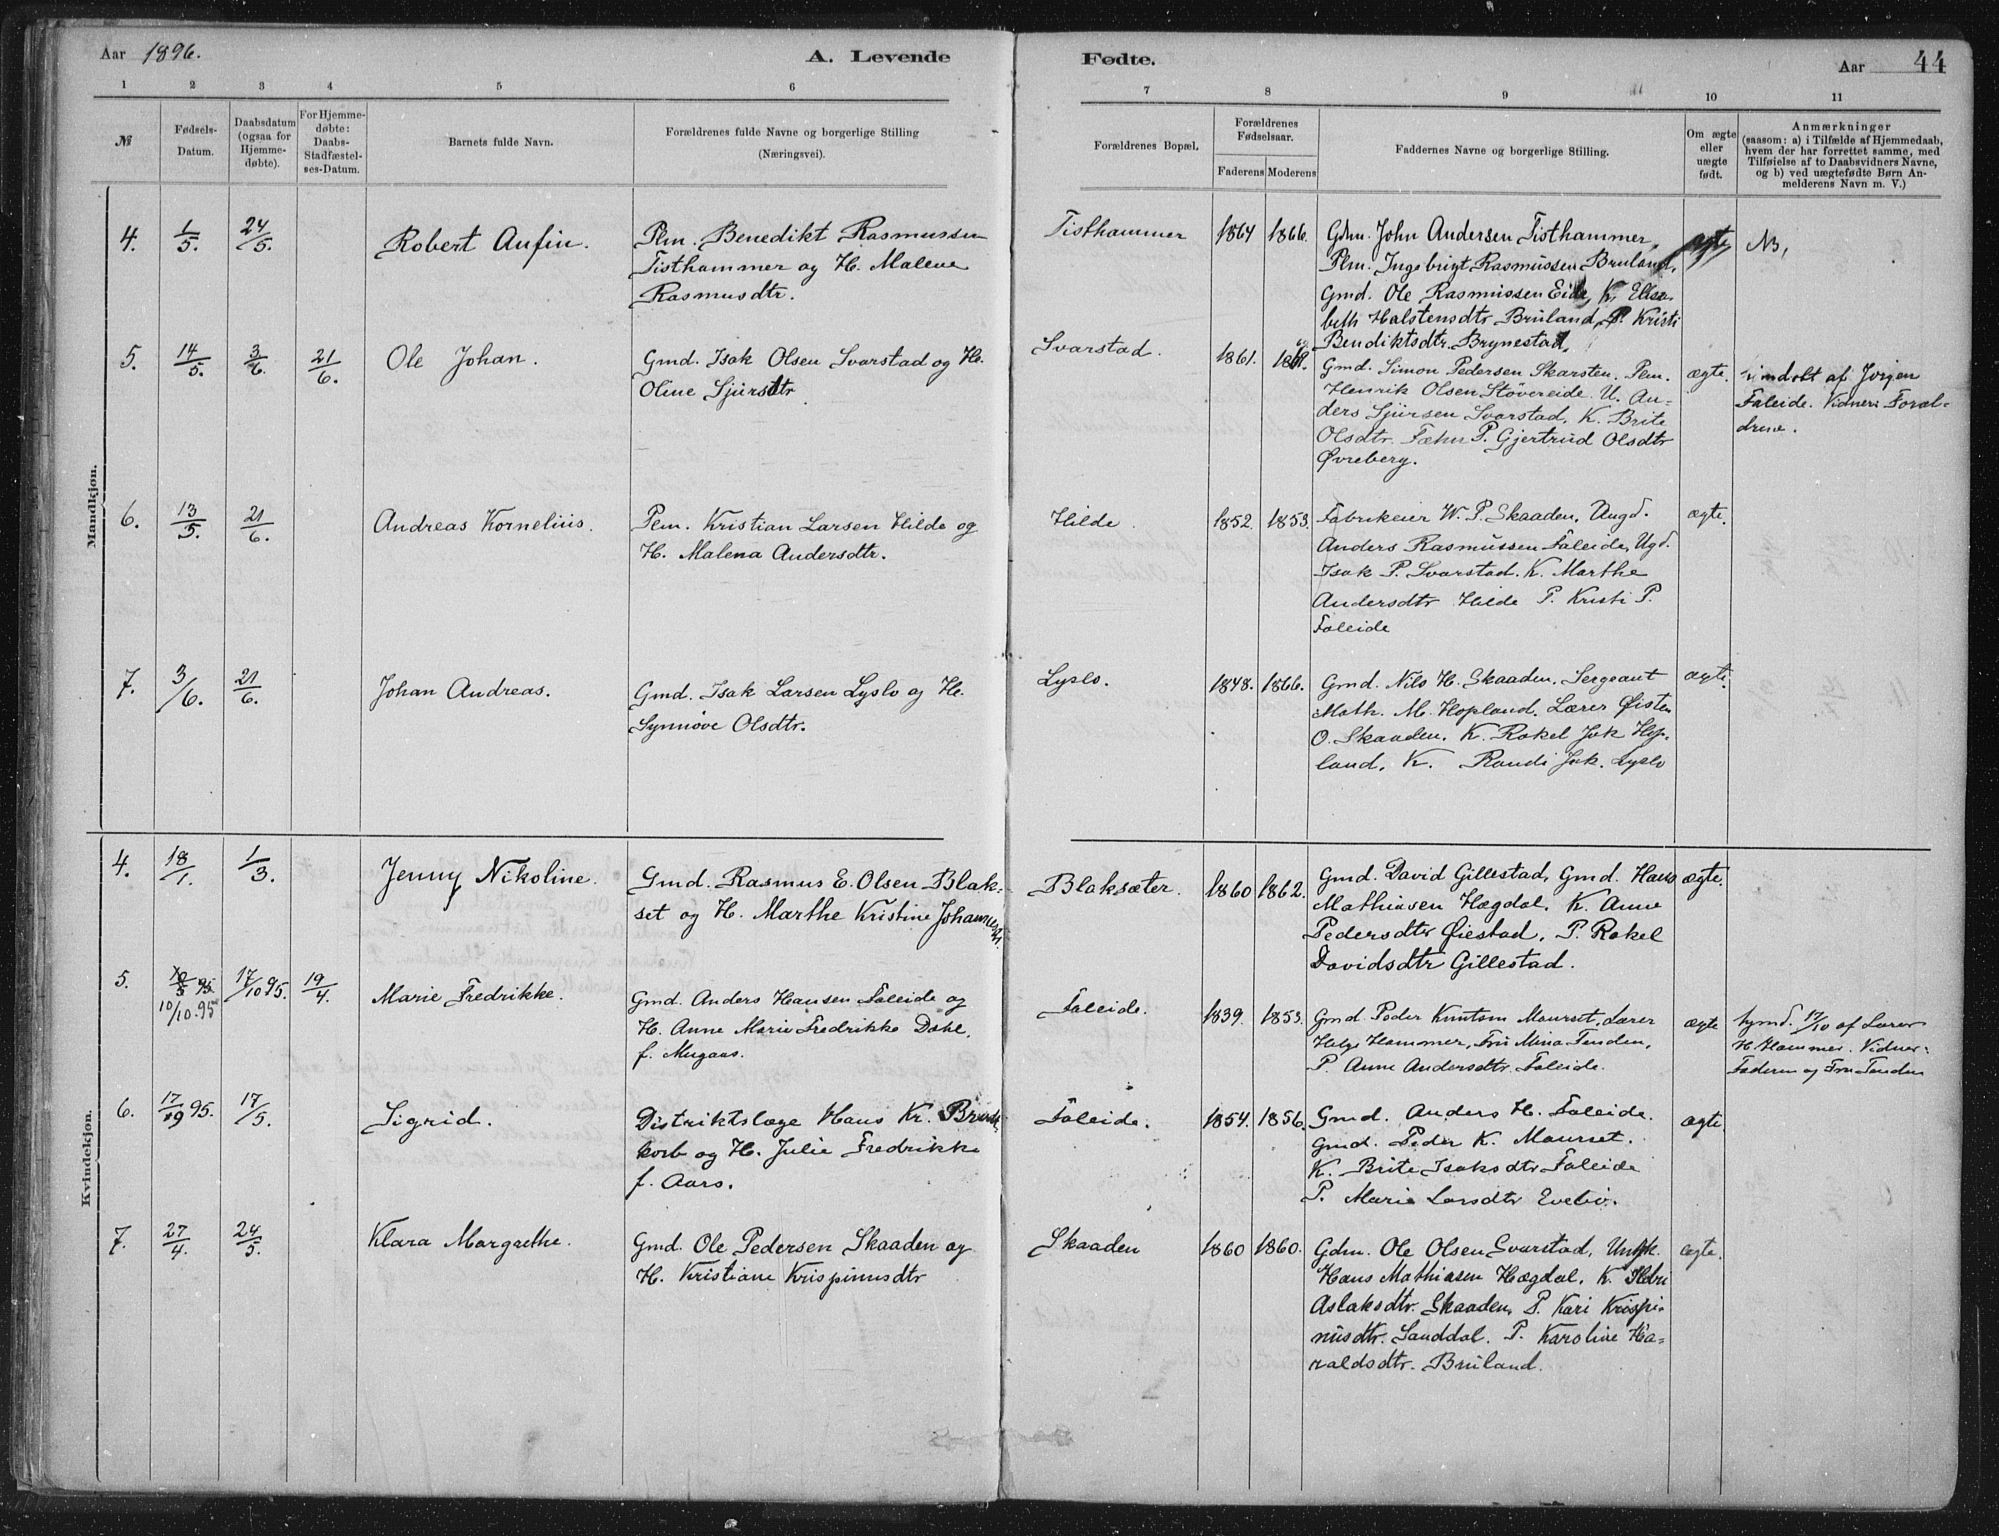 Aar 1896.
A. Levende
Fødte.
Aar
44
1 2 3 4 5 6 7 8 9 10 11
№
Fødsels-
Datum.
Daabsdatum
(ogsaa for
Hjemme-
døbte).
For Hjemme-
døbte:
Daabs-
Stadfæstel-
ses-Datum.
Barnets fulde Navn.
Forældrenes fulde Navne og borgerlige Stilling
(Næringsvei).
Forældrenes Bopæl.
Forældrenes
Fødselsaar.
Faderens Moderens
Faddernes Navne og borgerlige Stilling.
Om ægte
eller
uægte
født.
Anmærkninger
(saasom: a) i Tilfælde af Hjemmedaab,
hvem der har forrettet samme, med
Tilføielse af to Daabsvidners Navne,
og b) ved uægtefødte Børn An-
melderens Navn m. V.)
Mandkjøn.
4. 1/5. 24/5 Robert Anfin.
Plm. Benedikt Rasmussen
Tisthammer og H. Malene
Rasmusdtr.
Tisthammer 1864 1866.
Gdm. John Andersen Tisthammer,
Plm. Ingebrigt Rasmussen Bruland,
Gmd. Ole Rasmussen Eide, K. Elisa-
beth Halstensdtr Bruland, P. Kristi
Bendiktsdtr. Brynestad,
ægte NB,
5. 14/5. 3/6 21/6. Ole Johan.
Gmd. Isak Olsen Svarstad og H.
Oline Sjursdtr
Svarstad. 1861.
Gmd. Simon Pedersen Skarsten. Plm.
Henrik Olsen Støvereide. U. An-
ders Sjursen Svarstad, K. Brite
Olsdtr. Fæhn P. Gjertrud Olsdtr
Øvreberg.
ægte.
af Jørgen
Faleide. Vidner: Foræl-
drene.
6. 13/5. 21/6. Andreas Kornelius.
Plm. Kristian Larsen Hilde og
H. Malena Andersdtr.
Hilde. 1852. 1853.
Fabrikeier W. P. Skaaden, Ungd.
Anders Rasmussen Faleide, Ugd.
Isak P. Svarstad. K. Marthe
Andersdtr Hilde P. Kristi P.
Faleide
ægte.
7. 3/6. 21/6. Johan Andreas.
Gmd. Isak Larsen Lyslo og H.
Synnøve Olsdtr.
Lyslo. 1848. 1866.
Gmd. Nils H. Skaaden, Sergeant
Math. M. Hopland. Lærer Østen
O. Skaaden. K. Rakel Jak Hop-
land, K. Randi Jak. Lyslo
ægte.
Kvindekjøn.
4. 18/1. 1/3. Jenny Nikoline.
Gmd. Rasmus E. Olsen Blak-
set og H. Marthe Kristine Johannesdtr.
Blaksæter. 1860 1862.
Gmd. David Gillestad, Gmd. Hans
Mathiasen Hægdal. K. Anne
Pedersdtr Øiestad, P. Rakel
Davidsdtr Gillestad.
ægte.
5. 10/10. 95 17/10 95. 19/4. Marie Fredrikke.
Gmd. Anders Hansen Faleide og
H. Anne Marie Fredrikke Dahl,
f. Mugaas.
Faleide. 1839. 1853.
Gmd Peder Knutsen Maurset. Lærer
Helge Hammer, Fru Mina Tenden,
P. Anne Andersdtr. Faleide.
ægte
hjmd. 17/10 af Lærer
H. Hammer. Vidner:
Faderen og Fru Tenden
6. 17/9 95. 17/5. Sigrid.
Distriktslæge Hans Kr.
og H. Julie Fredrikke
f. Aars.
Faleide. 1854. 1856.
Gmd. Anders H. Faleide.
Gmd. Peder K. Maurset.
K. Brite Isaksdtr Faleide
P. Marie Larsdtr Evebø.
ægte.
7. 27/4. 24/5. Klara Margrethe.
Gmd. Ole Pedersen Skaaden og
H. Kristiane Krispinusdtr
Skaaden 1860 1860.
Gdm. Ole Olsen Svarstad, Ungk.
Hans Mathiasen Hægdal, K.
Aslaksdtr. Skaaden, P. Kari Krispi-
nusdtr. Sanddal. P. Karoline Ha-
raldsdtr. Bruland.
ægte.